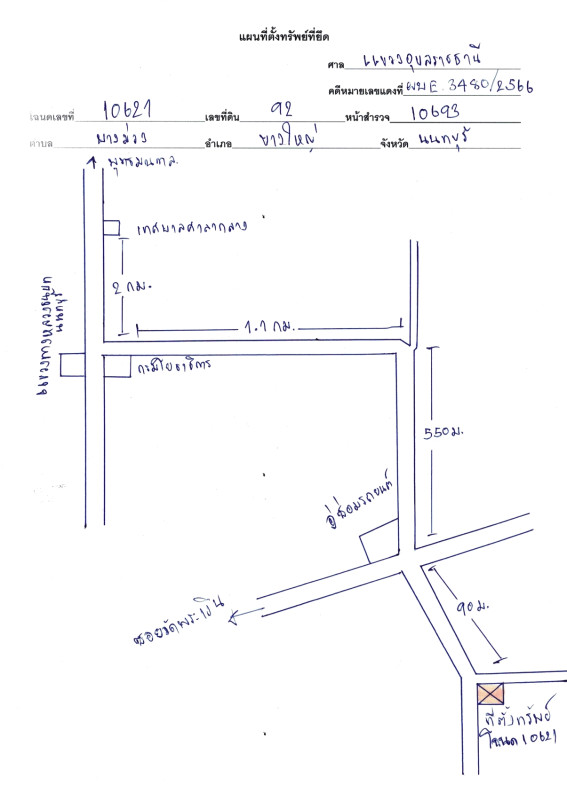 แผนที่ตั้งทรัพย์ที่ยึด
ศาล แขวงอุบลราชธานี
คดีหมายเลขแดงที่ ผบE.3480/2566
โฉนดเลขที่ 10621 เลขที่ดิน 92 หน้าสำรวจ 10693
ตำบล บางม่วง อำเภอ บางใหญ่ จังหวัด นนทบุรี
พุทธมณฑล
เทศบาลศาลากลาง
2 กม.
1.1 กม.
แขวงทางหลวงชนบท
นนทบุรี
กรมโยธาธิการ
550 ม.
อู่ซ่อมรถยนต์
90 ม.
ซอยวัดพระเงิน
ที่ตั้งทรัพย์
โฉนด 10621